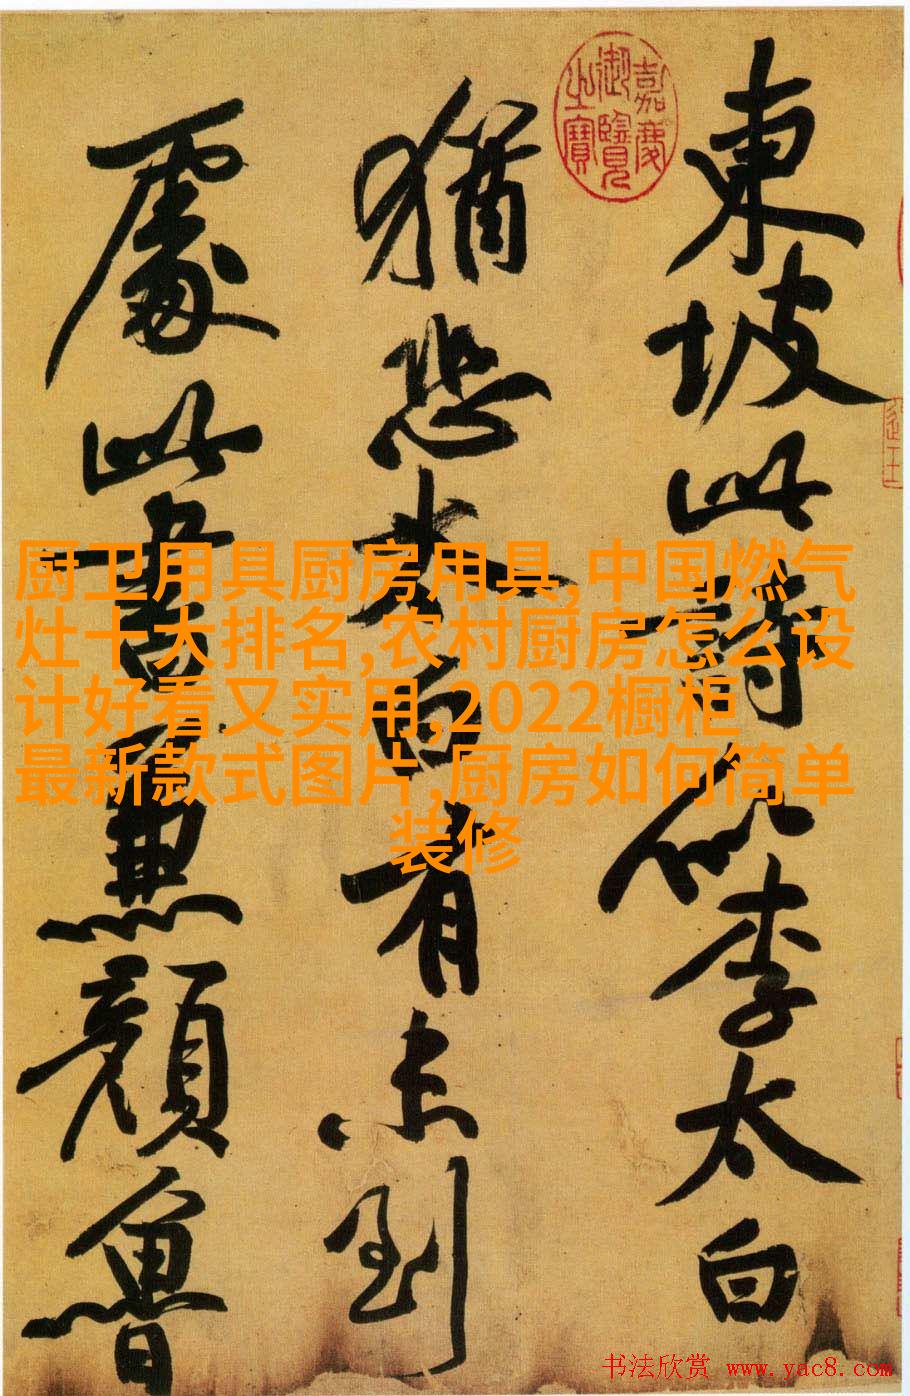 東坡此詩似李太白
猶恐太白有未到
處此書兼顏魯
嘉慶
御覽
之寶
厨卫用具厨房用具,中国燃气
灶十大排名,农村厨房怎么设
计好看又实用,2022橱柜
最新款式图片,厨房如何简单
装修
书法欣赏 www.yac8.com